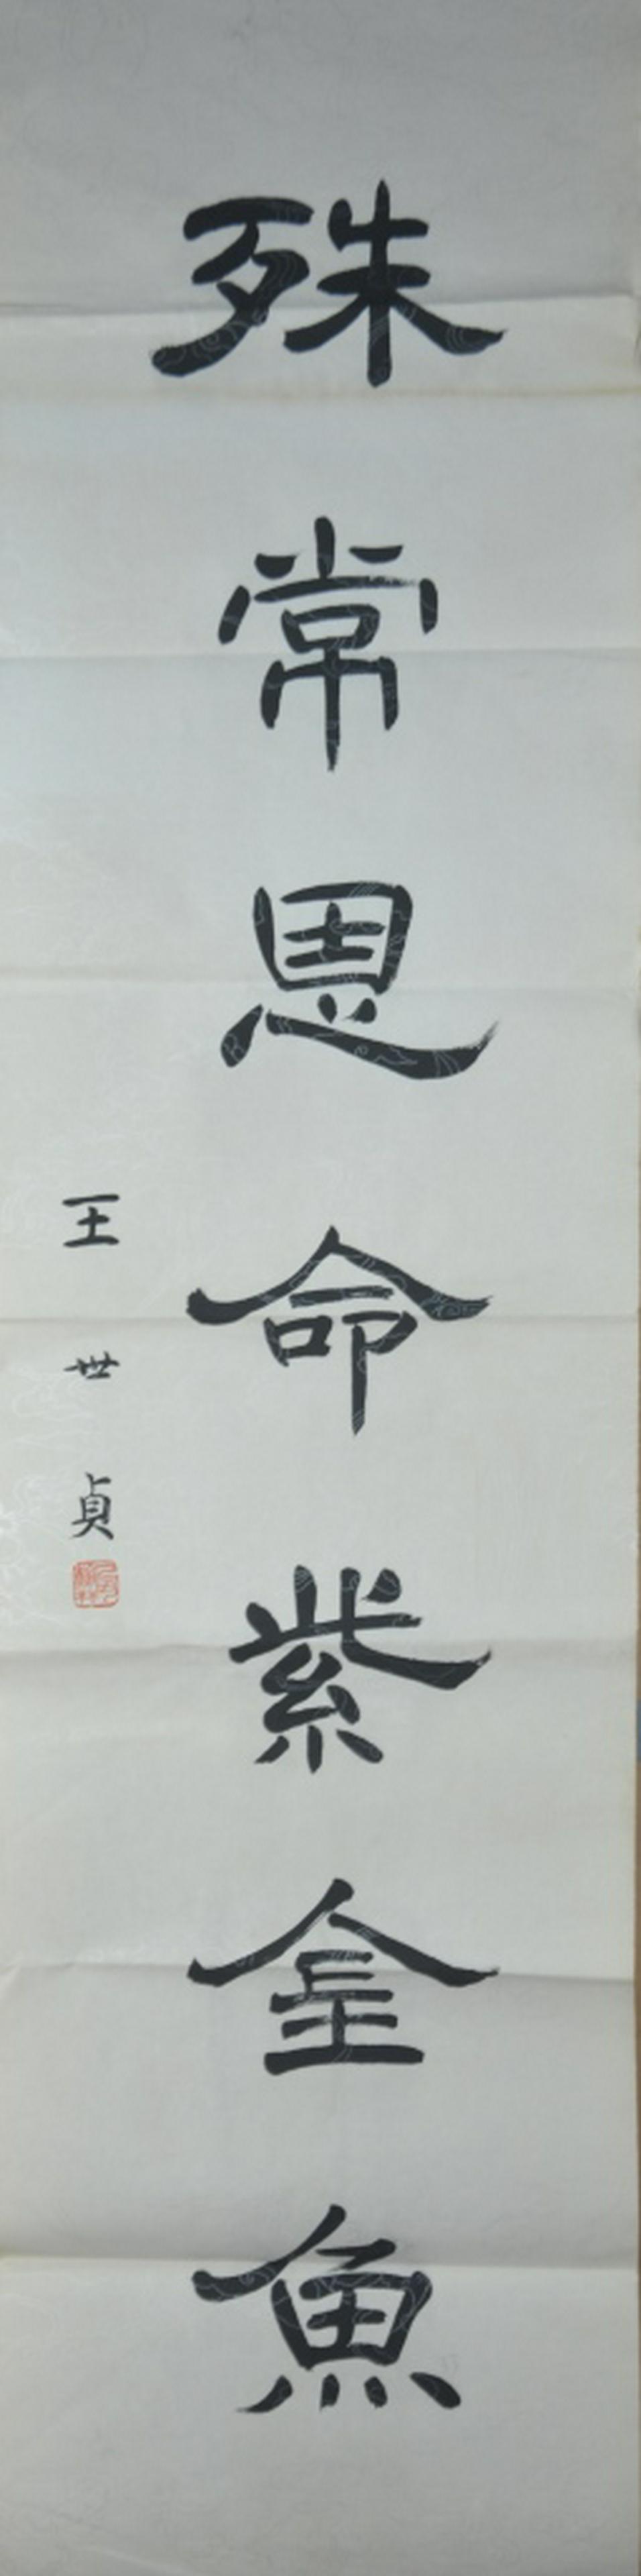 殊常恩命紫金魚
王世貞